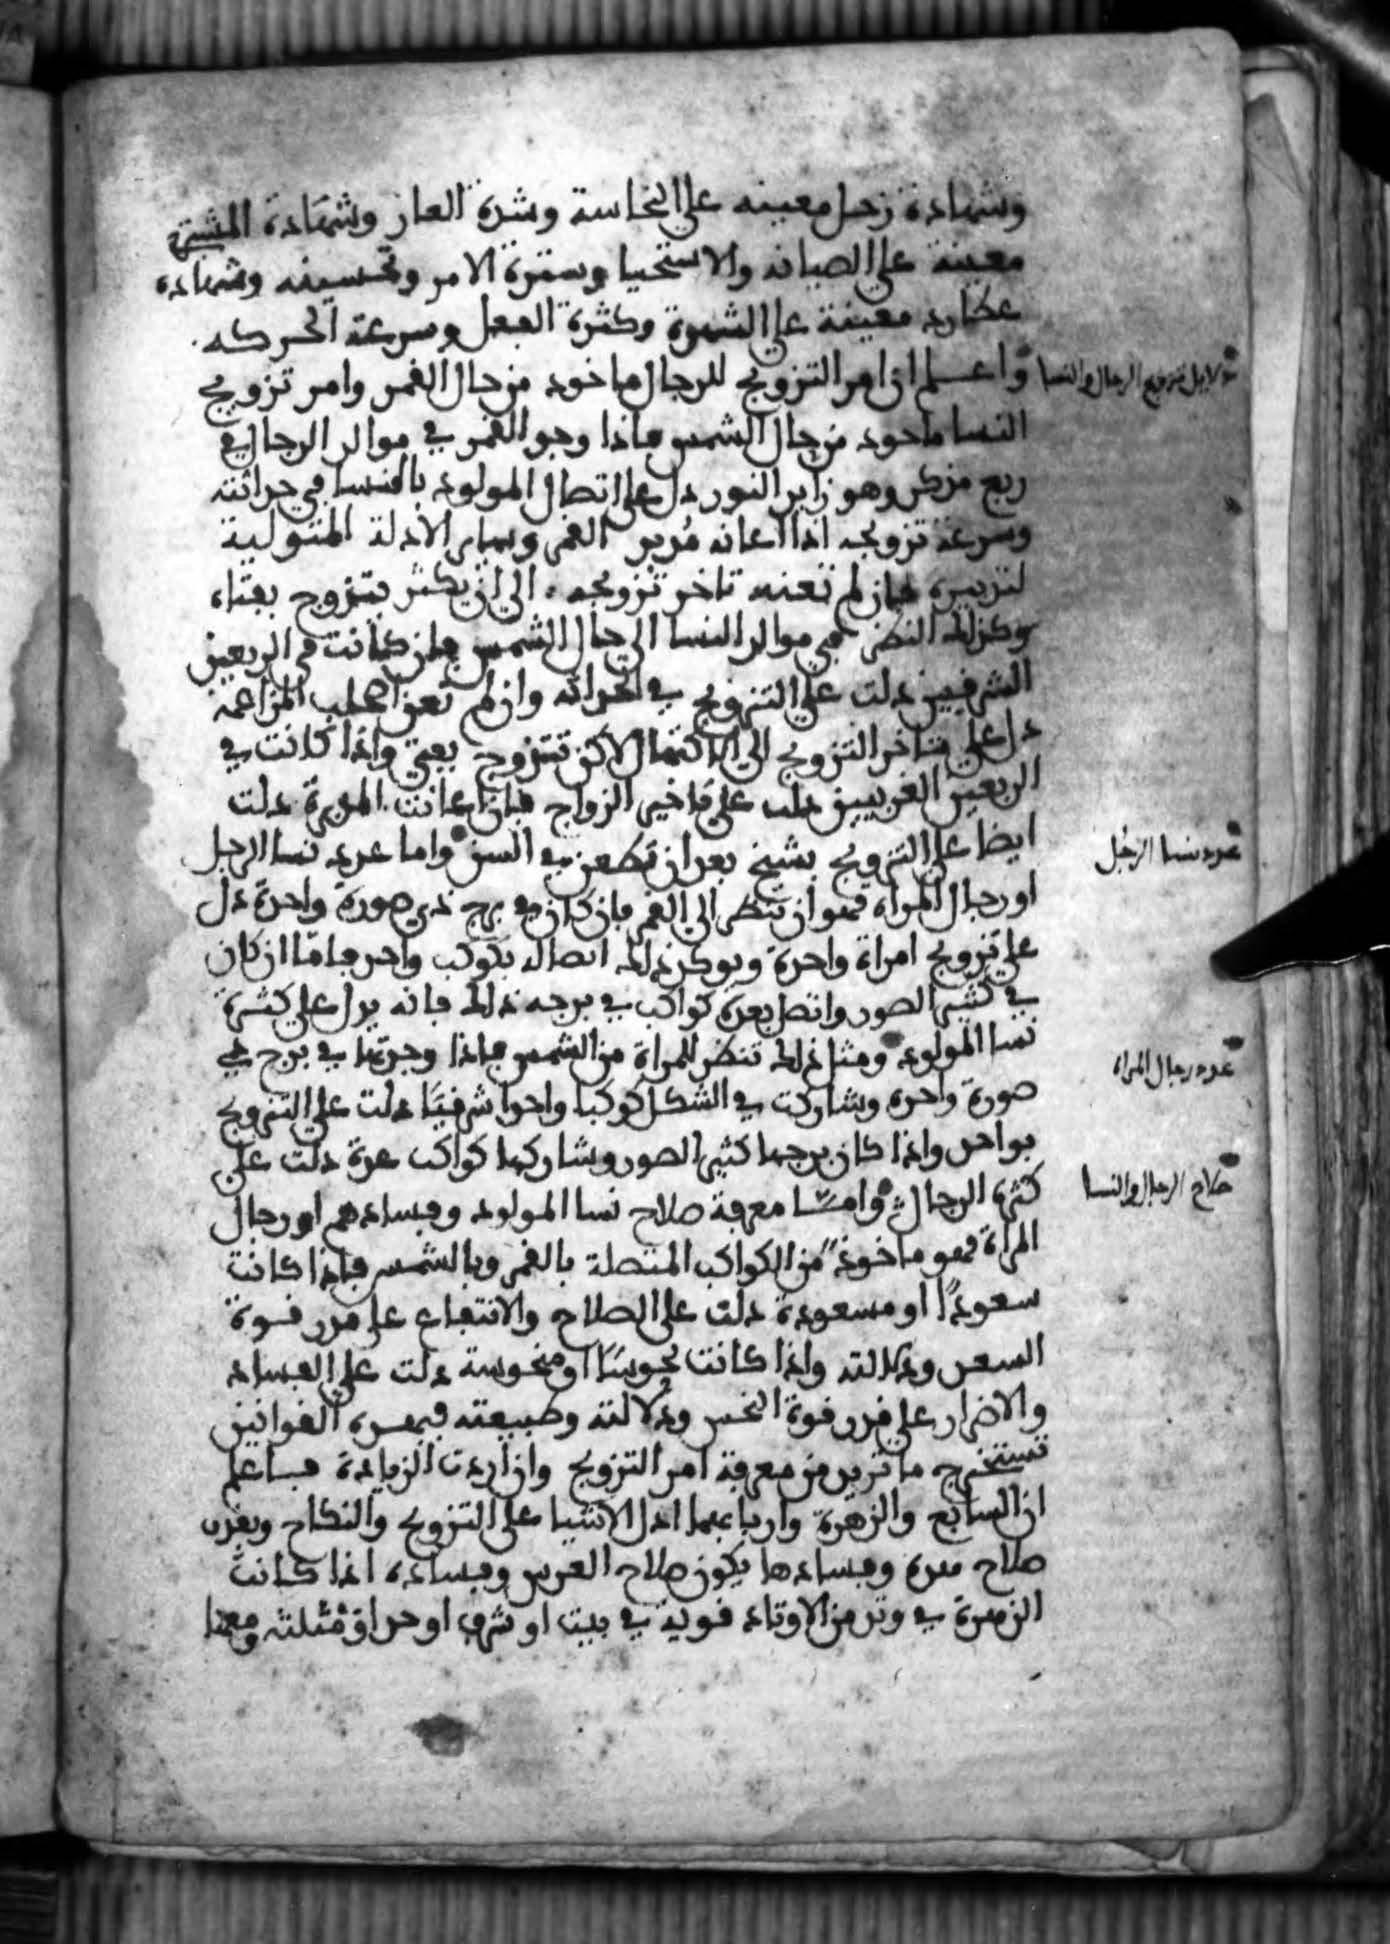 وشهادة زحل معينه على الخاسة وشدة العار وشهادة المشتري
معينة على الصيانه والاستحيا وسترة الامر وتحسينه وشهاده
عطارد معينة على الشهوة وكثرة الفعل وسرعة الحركه
دلايل تزويج الرجال والنسا
واعلم ان امر التزويج للرجال ماخوذ من حال القمر وامر تزويج
النسا ماخوذ من حال الشمس فاذا وجد القمر في موالد الرجال في
ربع مذكر وهو زايد النور دل على اتصال المولود بالنسا في حداثته
وسرعة تزويجه اذا اعانه مدبر القمر وساير الادلة المتولية
لتدبيره فان لم تعنه تاخر تزويجه الى ان يكثر فيتزوج بفتاه
وكذلك النظر في موالد النسا الى حال الشمس فان كانت في الربعين
الشرقيين دلت على التزويج في الحداثه وان لم تعن اصحاب المزاعمة
دل على تاخر التزويج الى الاكتهال لاكن تتزوج بفتى واذا كانت في
الربعين الغربيين دلت على تاخير الزواج فان اعانت المدبرة دلت
ايضا على التزويج بشيخ بعد ان تطعن في السن واما عدد نسا الرجل
عدد نسا الرجل
او رجال المراه فهو ان تنظر الى القمر فان كان في برج ذي صورة واحدة دل
على تزويج امراة واحدة ويوكد ذلك اتصاله بكوكب واحد فاما ان كان
في كثير الصور واتصل بعدة كواكب في برجه ذلك فانه يدل على كثرة
نسا المولود ومثل ذلك تنظر للمراة من الشمس فاذا وجدتها في برج ذي
عدد رجال المراه
صورة واحدة وشاركت في الشكل كوكبا واحدا شرقيا دلت على التزويج
بواحد واذا كان برجها كثير الصور وشاركها كواكب عدة دلت على
كثرة الرجال واما معرفة صلاح نسا المولود وفسادهم او رجال
صلاح الرجال والنسا
المراة فهو ماخوذ من الكواكب المتصلة بالقمر وبالشمس فاذا كانت
سعودًا او مسعودة دلت على الصلاح والانتفاع على قدر قوة
السعد ودلالته واذا كانت نحوسًا او منحوسة دلت على الفساد
والاضرار على قدر قوة النحس ودلالته وطبيعته فبهذه القوانين
تستخرج ما تريد من معرفة امر التزويج وان اردت الزيادة فاعلم
ان السابع والزهرة واربابهما ادل الاشيا على التزويج والنكاح وبقدر
صلاح هذه وفسادها يكون صلاح العرس وفساده اذا كانت
الزهرة في وتد من الاوتاد قوية في بيت او شرف او حد او مثلثه ومعها